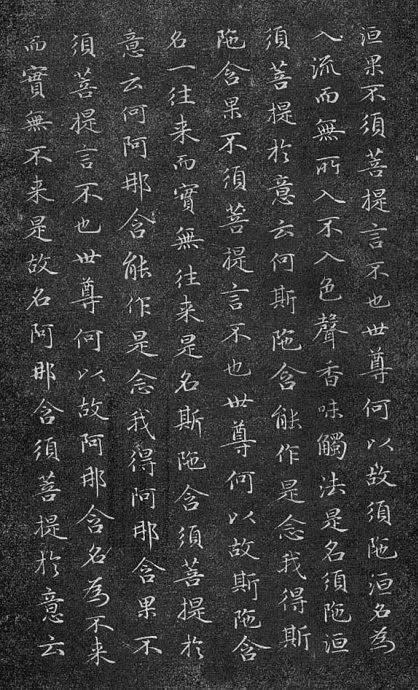 洹果不須菩提言不也世尊何以故須陁洹名為
入流而無所入不入色聲香味觸法是名須陁洹
須菩提於意云何斯陁含能作是念我得斯
陁含果不須菩提言不也世尊何以故斯陁含
名一往来而實無往来是名斯陁含須菩提於
意云何阿那含能作是念我得阿那含果不
須菩提言不也世尊何以故阿那含名為不来
而實無不来是故名阿那含須菩提於意云